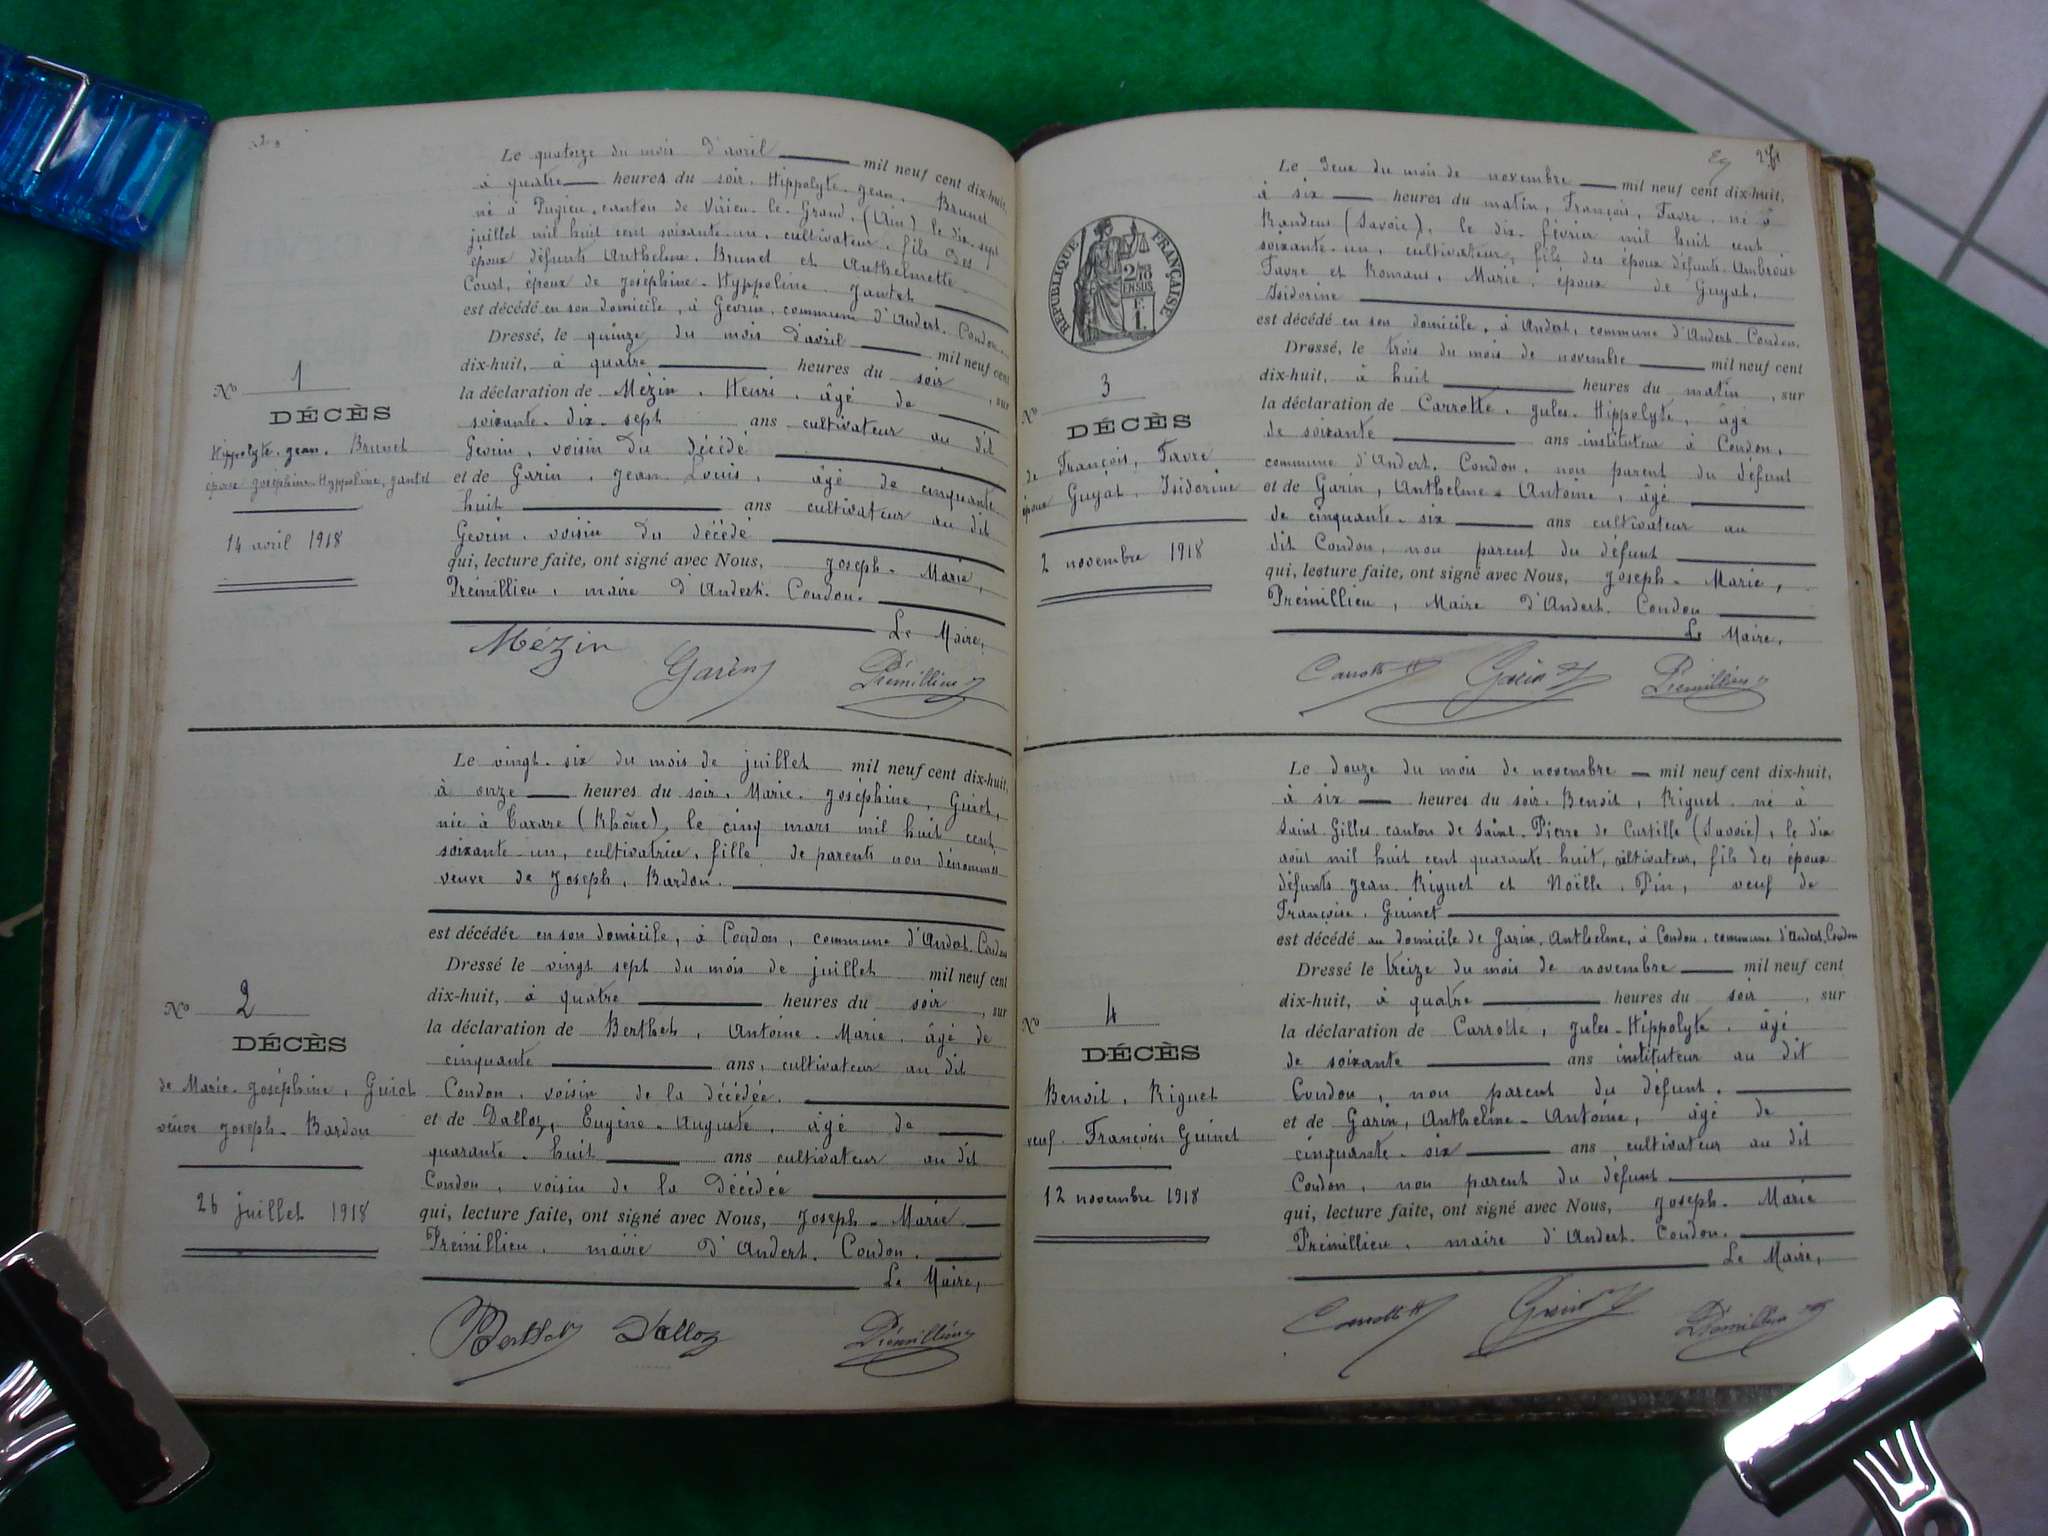 Le quatorze du mois d'avril mil neuf cent dix-huit,
à quatre heures du soir. Hippolyte. Jean. Brunet
né à Pugieu, canton de Virieu-le-Grand, (Ain) le dix-sept
juillet mil huit cent soixante-un, cultivateur, fils des
époux défunts Anthelme. Brunet et Anthelmette
Court, époux de Joséphine-Hyppoline. Jantet
est décédé en son domicile, à Gevrin, commune d'Andert-Condon.
Dressé, le quinze du mois d'avril mil neuf cent
dix-huit, à quatre heures du soir, sur
la déclaration de Mézin. Henri. âgé de
soixante-dix-sept ans cultivateur au dit
Gevrin, voisin du décédé
et de Garin, Jean Louis, âgé de cinquante
huit ans cultivateur au dit
Gevrin. voisin du décédé
qui, lecture faite, ont signé avec Nous, Joseph-Marie,
Prémillieu, maire d'Andert-Condon.
Le Maire,
Mézin Garin Prémillieu
No 1
DÉCÈS
Hippolyte. Jean. Brunet
époux Joséphine-Hyppoline, Jantet
14 avril 1918
Le vingt-six du mois de juillet mil neuf cent dix-huit,
à onze heures du soir. Marie-Joséphine, Guiot,
née à Tarare (Rhône), le cinq mars mil huit cent
soixante-un, cultivatrice, fille de parents non dénommés
veuve de Joseph, Bardon.
est décédée en son domicile, à Condon, commune d'Andert-Condon
Dressé le vingt sept du mois de juillet mil neuf cent
dix-huit, à quatre heures du soir, sur
la déclaration de Berthet, Antoine-Marie. âgé de
cinquante ans, cultivateur au dit
Condon, voisin de la décédée.
et de Dalloz, Eugène-Auguste. âgé de
quarante-huit ans cultivateur au dit
Condon, voisin de la décédée
qui, lecture faite, ont signé avec Nous, Joseph-Marie
Prémillieu, maire d'Andert-Condon.
Le Maire,
Berthet Dalloz Prémillieu
No 2
DÉCÈS
de Marie-Joséphine, Guiot
veuve Joseph-Bardon
26 juillet 1918
RÉPUBLIQUE FRANÇAISE
Le deux du mois de novembre mil neuf cent dix-huit,
à six heures du matin, François, Favre. né à
Randens (Savoie), le dix février mil huit cent
soixante-un, cultivateur, fils des époux défunts Ambroise
Favre et Romans, Marie, époux de Guyat,
Isidorine
est décédé en son domicile, à Andert, commune d'Andert-Condon.
Dressé, le trois du mois de novembre mil neuf cent
dix-huit, à huit heures du matin, sur
la déclaration de Carrotte, Jules-Hippolyte, âgé
de soixante ans instituteur à Condon,
commune d'Andert-Condon, non parent du défunt
et de Garin, Anthelme-Antoine, âgé
de cinquante-six ans cultivateur au
dit Condon, non parent du défunt
qui, lecture faite, ont signé avec Nous, Joseph-Marie,
Prémillieu, Maire d'Andert-Condon
Le Maire,
Carrotte Garin Prémillieu
No 3
DÉCÈS
de François, Favre
époux Guyat, Isidorine
2 novembre 1918
Le douze du mois de novembre mil neuf cent dix-huit,
à six heures du soir. Benoit, Riguet né à
Saint-Gilles canton de Saint-Pierre de Curtille (Savoie), le dix
août mil huit cent quarante huit, cultivateur, fils des époux
défunts Jean Riguet et Noëlle. Pin, veuf de
Françoise. Guinet
est décédé au domicile de Garin, Anthelme, à Condon, commune d'Andert-Condon
Dressé le treize du mois de novembre mil neuf cent
dix-huit, à quatre heures du soir, sur
la déclaration de Carrotte, Jules-Hippolyte. âgé
de soixante ans instituteur au dit
Condon, non parent du défunt.
et de Garin, Anthelme-Antoine, âgé de
cinquante-six ans cultivateur au dit
Condon, non parent du défunt
qui, lecture faite, ont signé avec Nous, Joseph-Marie
Prémillieu, maire d'Andert-Condon.
Le Maire,
Carrotte Garin Prémillieu
No 4
DÉCÈS
Benoit, Riguet
veuf Françoise Guinet
12 novembre 1918